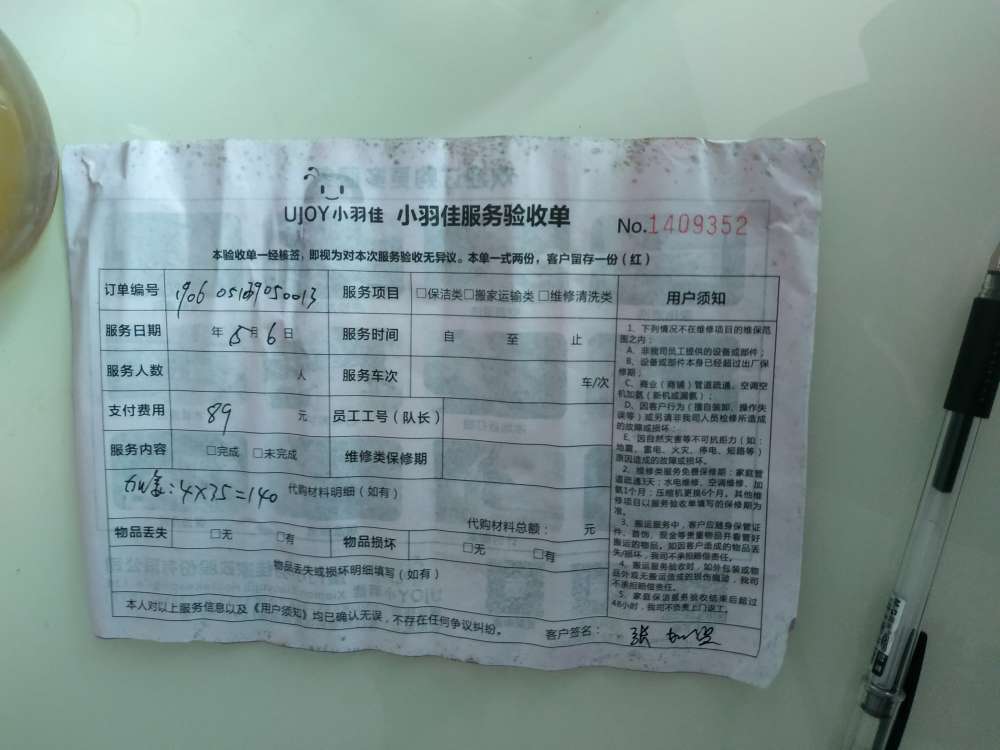 UJOY小羽佳 小羽佳服务验收单
No.1409352
本验收单一经核签，即视为对本次服务验收无异议。本单一式两份，客户留存一份（红）
订单编号 190605139050013 服务项目 □保洁类□搬家运输类□维修清洗类
服务日期 年5月6日 服务时间 自 至 止
服务人数 人 服务车次 车/次
支付费用 89 元 员工工号（队长）
服务内容 □完成 □未完成 维修类保修期
4X35=140 代购材料明细（如有）
代购材料总额： 元
物品丢失 □无 □有 物品损坏 □无 □有
物品丢失或损坏明细填写（如有）
本人对以上服务信息以及《用户须知》均已确认无误，不存在任何争议纠纷。 客户签名： 张
用户须知
1、下列情况不在维修项目的维保范
围之内：
A、非我司员工提供的设备或部件；
B、设备或部件本身已经超过出厂保
修期；
C、商业（商铺）管道疏通、空调空
机加氨（新机或漏氨）；
D、因客户行为（擅自装卸、操作失
误等）或另请非我司人员检修所造成
的故障或损坏；
E、因自然灾害等不可抗拒力（如：
地震、雷电、火灾、停电、短路等）
原因造成的故障或损坏。
2、维修类服务免费保修期：家庭管
道疏通3天；水电维修、空调维修、加
氨1个月；压缩机更换6个月。其他维
修项目以服务验收单填写的保修期为
准。
3、搬运服务中，客户应随身保管证
件、首饰、现金等贵重物品并看管好
搬运的物品。如因客户造成的物品丢
失/损坏，我司不承担赔偿责任。
4、搬运服务验收时，如外包装或物
品外观无搬运造成的损伤痕迹，我司
不承担赔偿责任。
5、家庭保洁服务验收结束后超过
48小时，我司不负责上门返工。